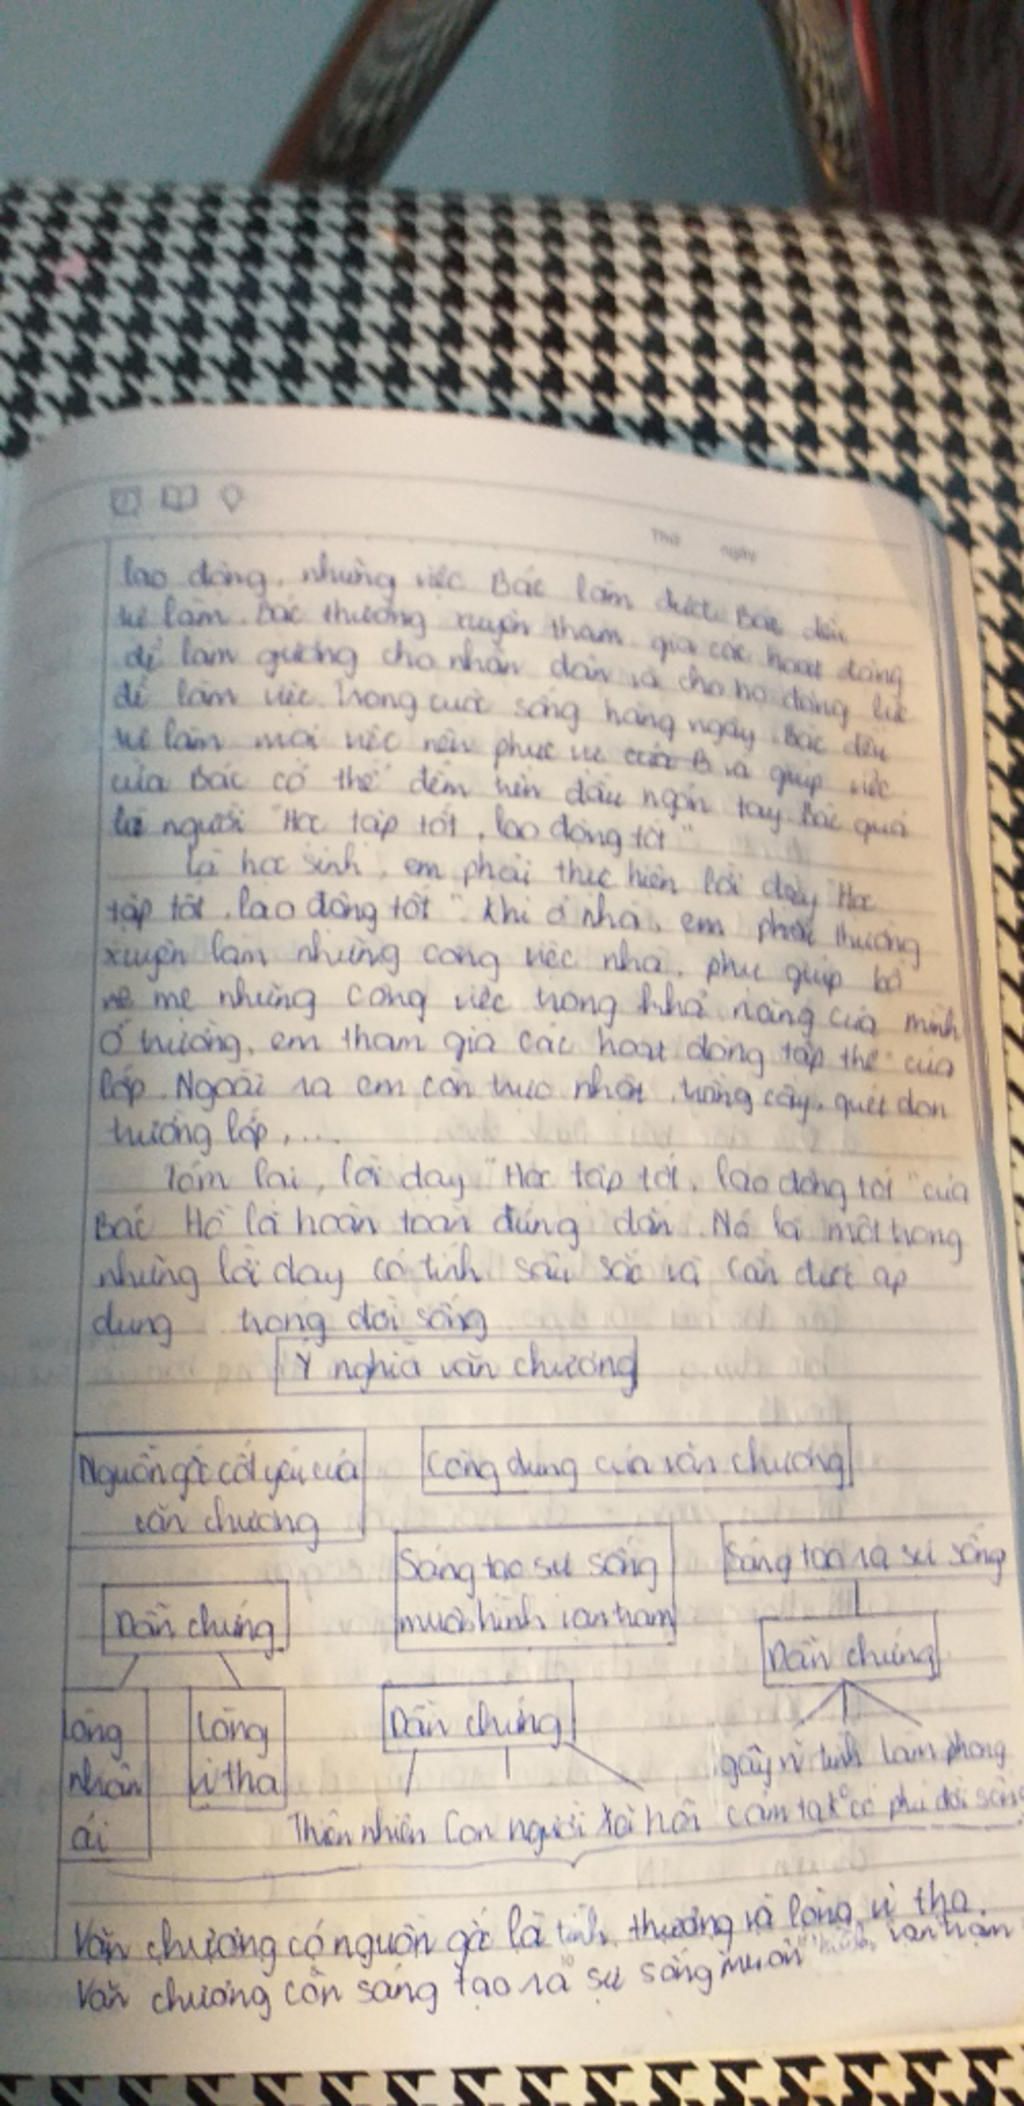 Thứ ngày
lao động, những việc Bác làm được Bác đều
tự làm. Bác thường xuyên tham gia các hoạt động
để làm gương cho nhân dân và cho họ động lực
để làm việc. Trong cuộc sống hàng ngày Bác đều
tự làm mọi việc nên phục vụ và giúp việc
của Bác có thể đếm trên đầu ngón tay. Bác quả
là người "Học tập tốt, lao động tốt"
Là học sinh, em phải thực hiện lời dạy "Học
tập tốt, lao động tốt". Khi ở nhà, em phải thường
xuyên làm những công việc nhà, phụ giúp bố
mẹ những công việc trong khả năng của mình
Ở trường, em tham gia các hoạt động tập thể của
lớp. Ngoài ra em còn trực nhật, trồng cây, quét dọn
trường lớp,...
Tóm lại, lời dạy "Học tập tốt, lao động tốt" của
Bác Hồ là hoàn toàn đúng đắn. Nó là một trong
những lời dạy có tính sâu sắc và cần được áp
dụng trong đời sống
Ý nghĩa văn chương
Nguồn gốc cốt yếu của
văn chương
Công dụng của văn chương
Sáng tạo sự sống
muôn hình vạn trạm
Sáng tạo ra sự sống
Dẫn chứng
Dẫn chứng
Dẫn chứng
Lòng
nhân
ái
Lòng
vị tha
Thiên nhiên Con người Xã hội
gây tình lam phong
có phú đời sống
Văn chương có nguồn gốc là tình thương và lòng vị tha.
Văn chương còn sáng tạo ra sự sống muôn hình vạn trạm